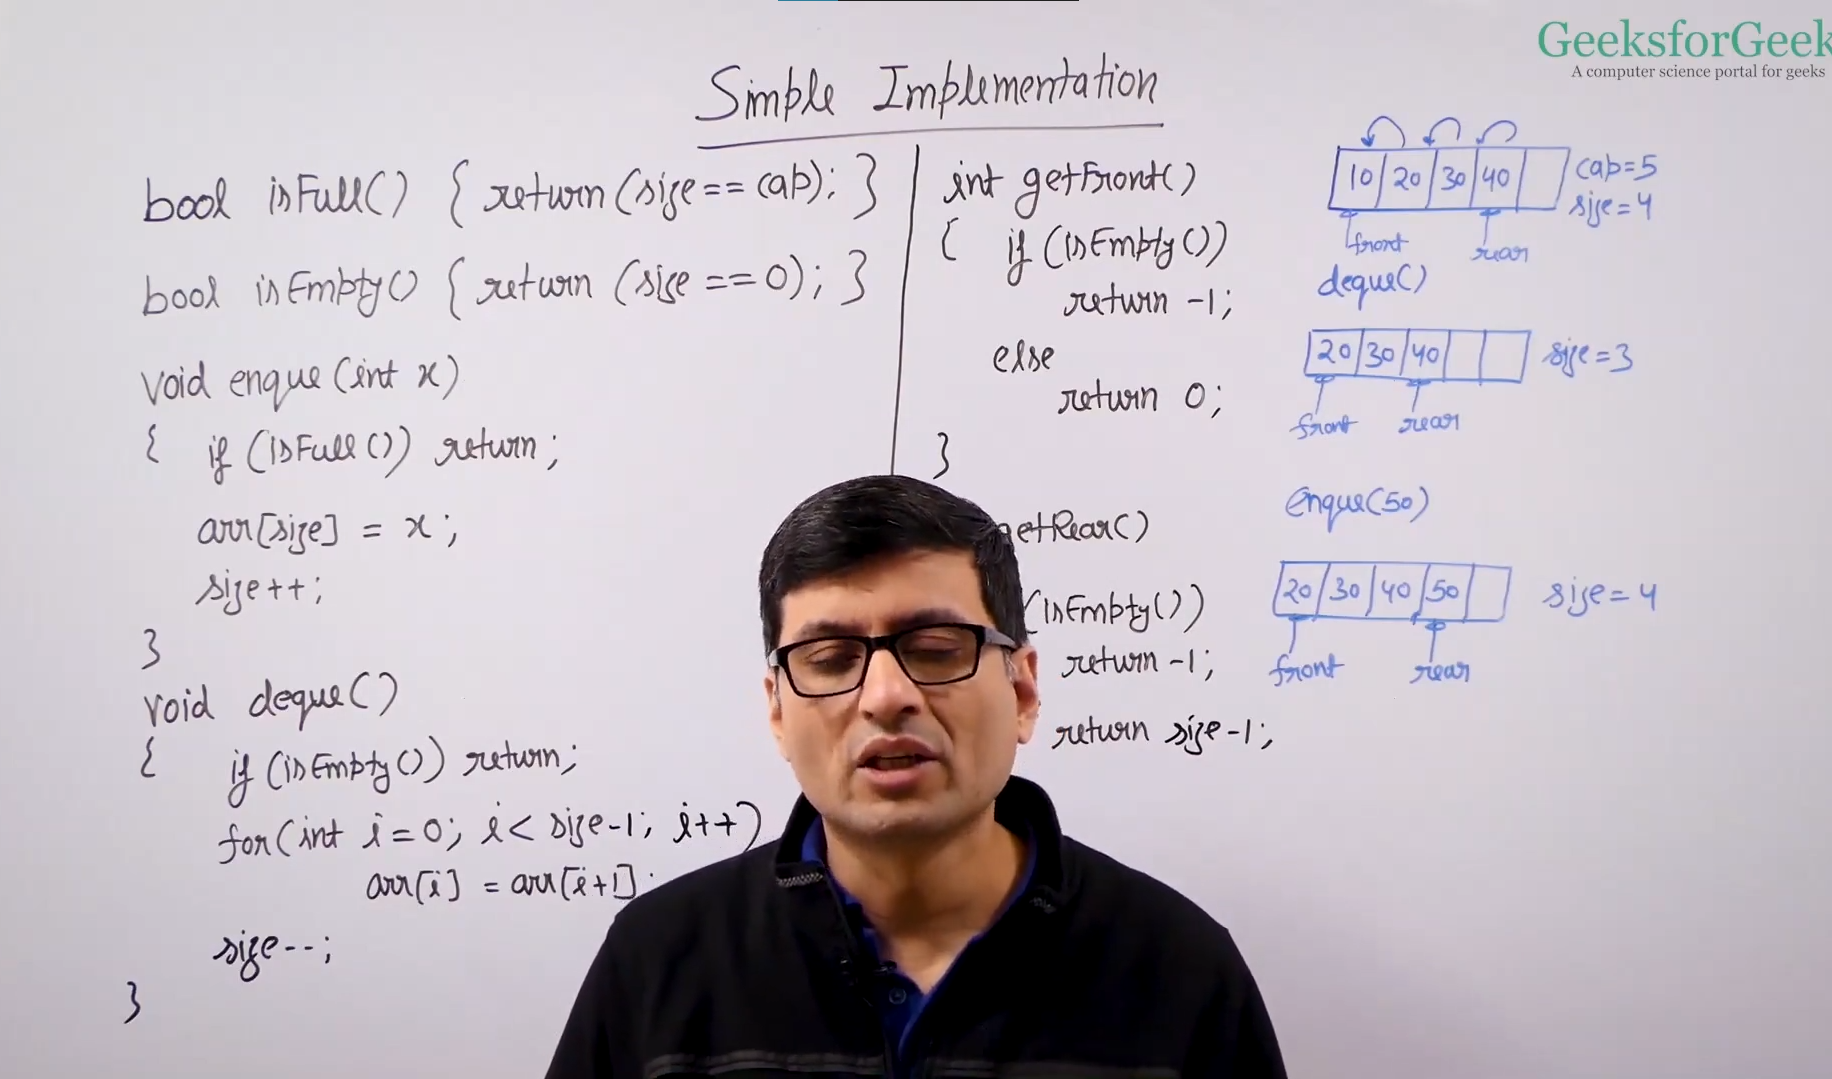 GeeksforGeek
A computer science portal for geeks
Simple Implementation
bool isFull() { return (size == cap); }
bool isEmpty() { return (size == 0); }
void enque (int x)
{ if (isFull()) return;
arr[size] = x;
size++;
}
void deque()
{ if (isEmpty()) return;
for (int i=0; i < size-1; i++)
arr[i] = arr[i+1];
size--;
}
int getFront()
{ if (isEmpty())
return -1;
else
return 0;
}
getRear()
(isEmpty())
return -1;
return size-1;
10 20 30 40 cap=5
size=4
front rear
deque()
20 30 40 size=3
front rear
enque(50)
20 30 40 50 size=4
front rear